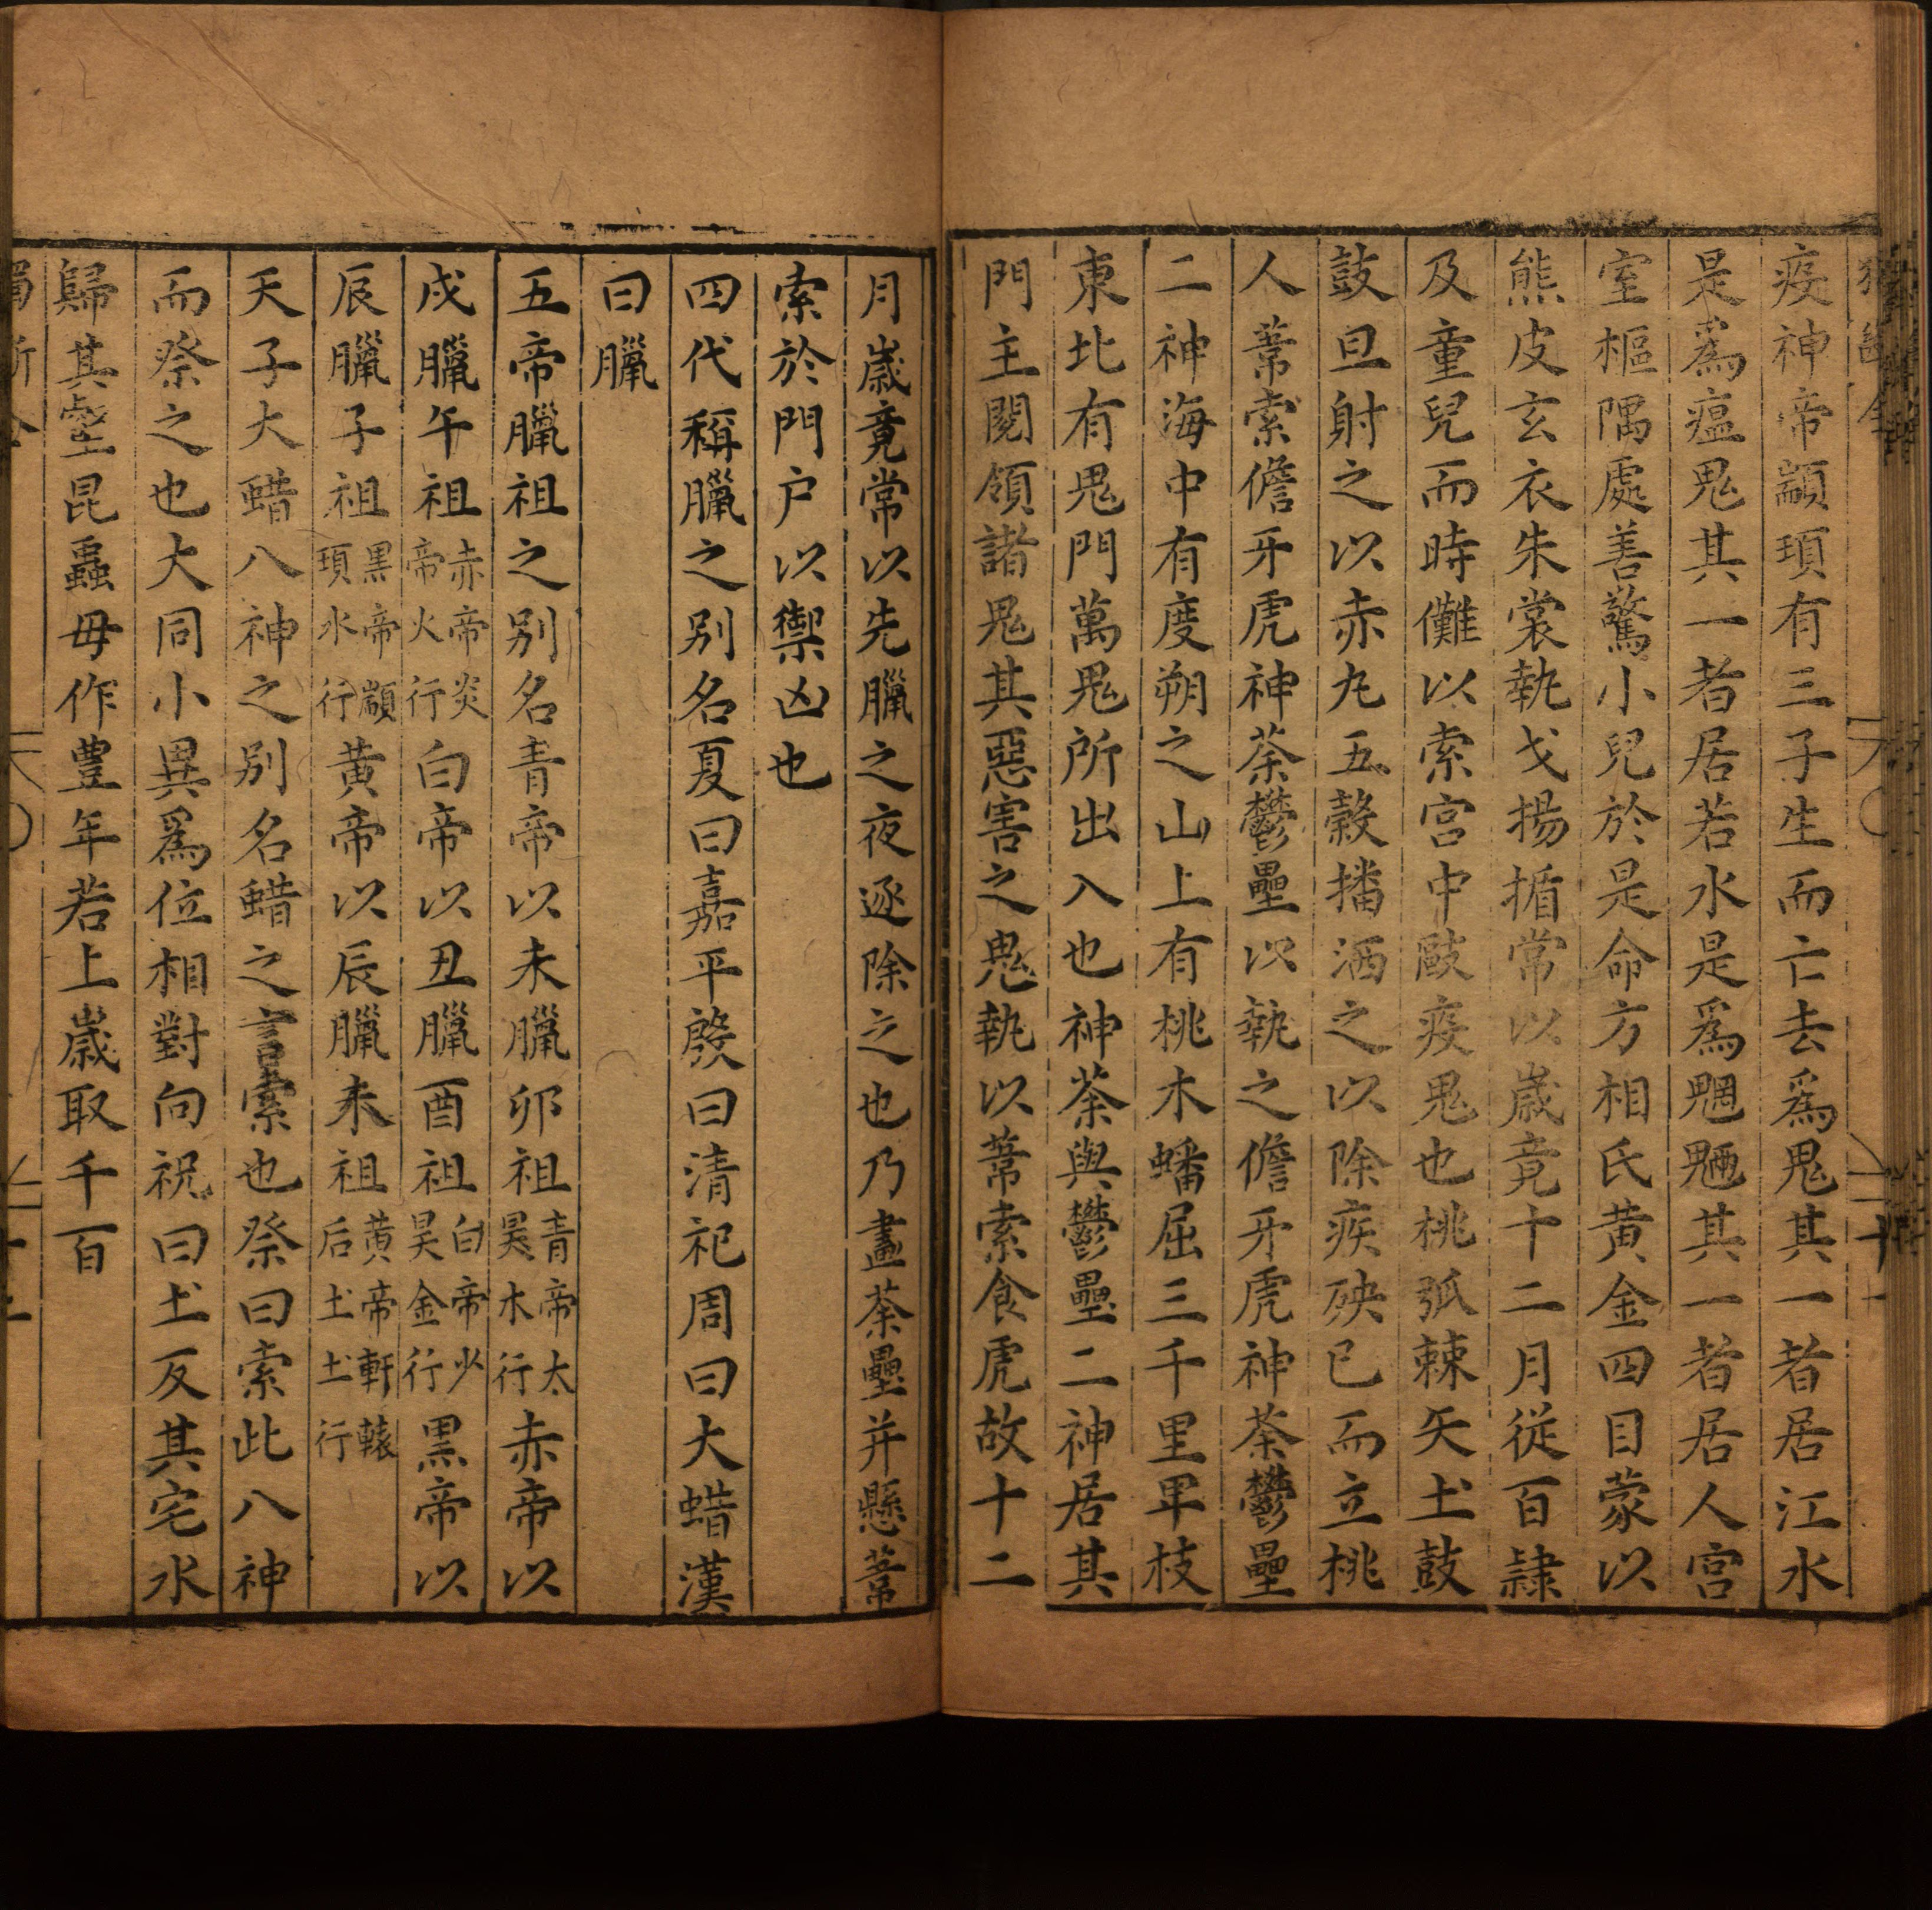 疫神帝顓頊有三子生而亡去爲鬼其一者居江水
是爲瘟鬼其一者居若水是爲魍魎其一者居人宮
室樞隅處善驚小兒於是命方相氏黃金四目蒙以
熊皮玄衣朱裳執戈揚揗常以歲竟十二月從百隷
及童兒而時儺以索宮中毆疫鬼也桃弧棘矢土鼓
鼓旦射之以赤丸五穀播洒之以除疾殃已而立桃
人葦索儋牙虎神荼鬱壘以執之儋牙虎神荼鬱壘
二神海中有度朔之山上有桃木蟠屈三千里卑枝
東北有鬼門萬鬼所出入也神荼與鬱壘二神居其
門主閱領諸鬼其惡害之鬼執以葦索食虎故十二
月歲竟常以先臘之夜逐除之也乃畫荼壘并懸葦
索於門户以禦凶也
四代稱臘之別名夏曰嘉平殷曰清祀周曰大蜡漢
曰臘
五帝臘祖之別名青帝以未臘卯祖青帝太昊木行赤帝以
戌臘午祖赤帝炎帝火行白帝以丑臘酉祖白帝少昊金行黒帝以
辰臘子祖黒帝顓頊水行黃帝以辰臘未祖黃帝軒轅后土土行
天子大蜡八神之別名蜡之言索也祭曰索此八神
而祭之也大同小異爲位相對向祝曰土反其宅水
歸其壑昆蟲毋作豊年若上歲取千百